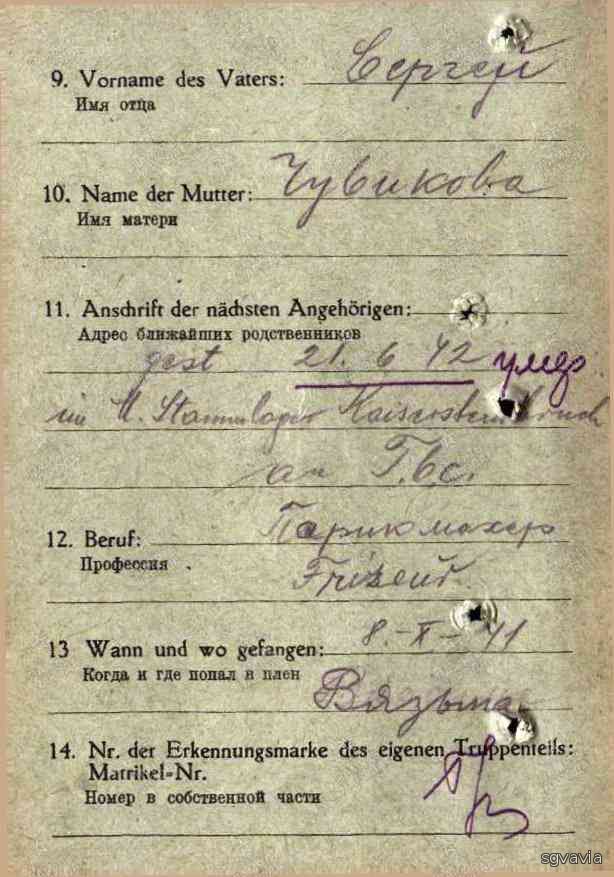 9. Vorname des Vaters: Сергей
Имя отца
10. Name der Mutter: Чувикова
Имя матери
11. Anschrift der nächsten Angehörigen:
Адрес ближайших родственников
gest 21. 6 42 умер
im M. Stammlager Kaisersteinbruch
an T.b.c.
12. Beruf: Парикмахер
Профессия
Friseur.
13 Wann und wo gefangen: 8.-X-41
Когда и где попал в плен
Вязьма
14. Nr. der Erkennungsmarke des eigenen Truppenteils:
Matrikel-Nr.
Номер в собственной части
sgvavia